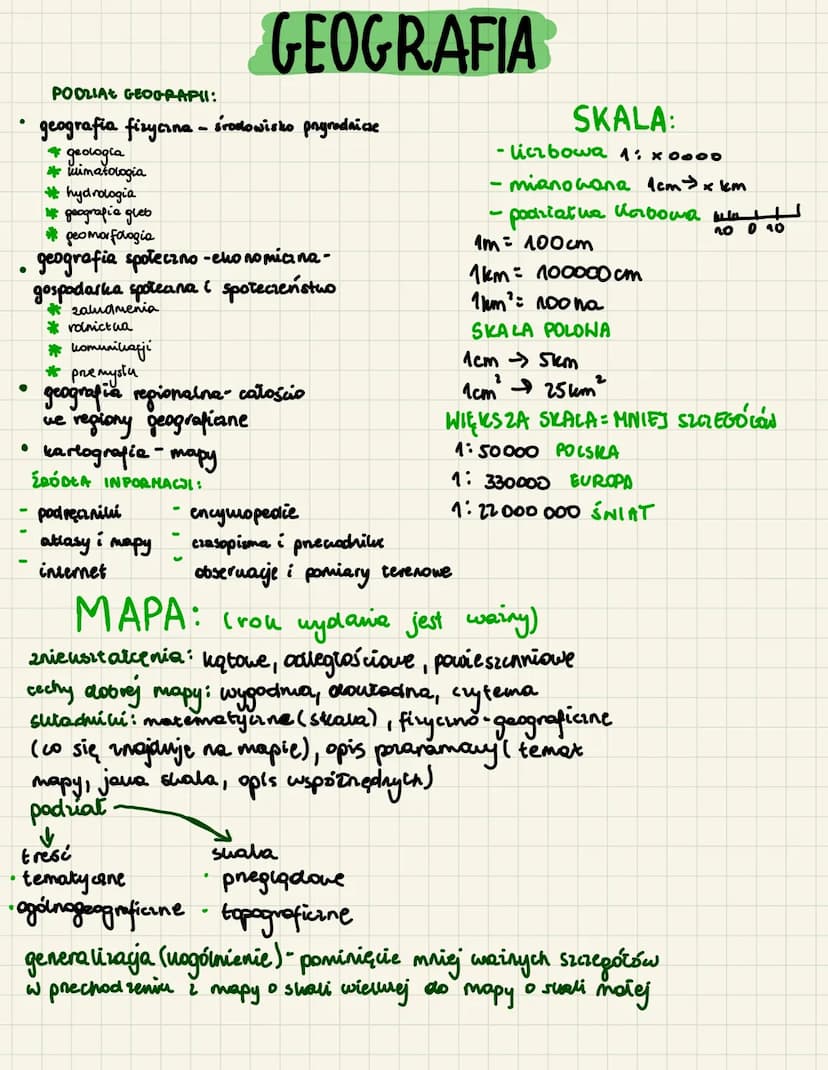 GEOGRAFIA
PODZIAŁ GEOGRAFII:
• geografia fizyczna – środowisko przyrodnicze
* geologia
* klimatologia
* hydrologia
* geografia gleb
* geomorfologia
• geografia społeczno-ekonomiczna-
gospodarka społeczna i społeczeństwo
* zaludnienia
* rolnictwa
* komunikacji
* przemysłu
• geografia regionalna- całościo
we regiony geograficzne
• kartografia - mapy
ŹRÓDŁA INFORMACJI:
- podręczniki
- atlasy i mapy
- internet
- encyklopedie
- czasopisma i przewodniki
- obserwacje i pomiary terenowe
SKALA:
- liczbowa 1: x0000
- mianowana 1cm→x km
- podziałka liczbowa
10 0 10
1m = 100cm
1km = 100000cm
1km²= 100ha
SKALA POLOWA
1cm → 5km
1cm² → 25km²
WIĘKSZA SKALA = MNIEJ SZCZEGÓŁÓW
1:50000 POLSKA
1: 330000 EUROPA
1:22 000 000 ŚWIAT
MAPA: (rok wydania jest ważny)
zniekształcenia: kątowe, odległościowe, powierzchniowe
cechy dobrej mapy: wygodna, dokładna, czytelna
składniki: matematyczne (skala), fizyczno-geograficzne
(co się znajduje na mapie), opis pozaramowy (temat
mapy, jaka skala, opis współrzędnych)
podział
treść
• tematyczne
• ogólnogeograficzne
skala
• przeglądowe
• topograficzne
generalizacja (uogólnienie)- pominięcie mniej ważnych szczegółów
w przechodzeniu z mapy o skali wielkiej do mapy o skali małej